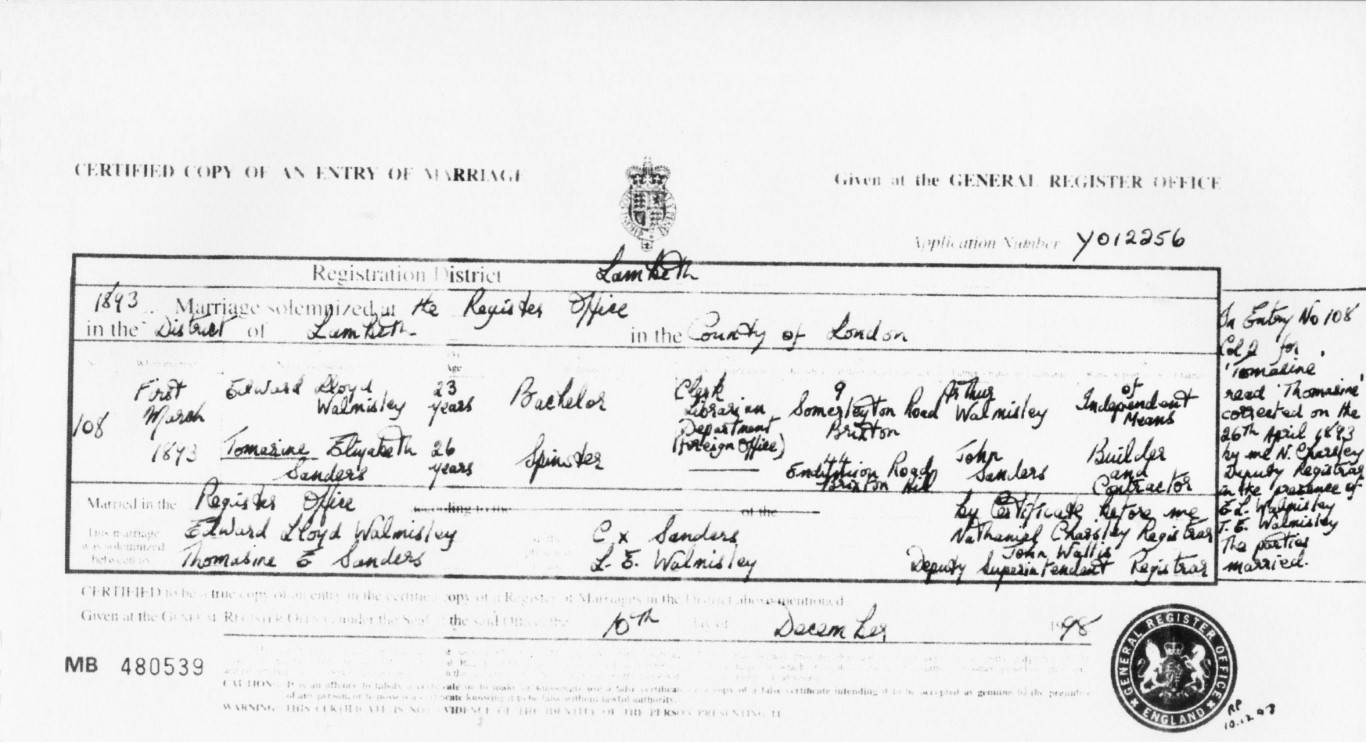 CERTIFIED COPY OF AN ENTRY OF MARRIAGE
Given at the GENERAL REGISTER OFFICE
Application Number Y012256
Registration District Lambeth
1893 Marriage solemnized at the Register Office
in the District of Lambeth in the County of London
108 First March 1893 Edward Lloyd Walmisley 23 years Bachelor Clerk Librarian Department (Foreign Office) 9 Somerleyton Road Brixton Arthur Walmisley of Independent Means
Tomasine Elizabeth Sanders 26 years Spinster 44 Road Brixton Hill John Sanders Builder and Contractor
Married in the Register Office according to the of the by Certificate before me
This marriage was solemnized between us
Edward Lloyd Walmisley
Thomasine E Sanders
C x Sanders
L. E. Walmisley
Nathaniel Charsley Registrar
John Wallis
Deputy Superintendent Registrar
In Entry No 108
Col 2 for
'Tomasine'
read 'Thomasine'
corrected on the
26th April 1893
by me N. Charsley
Deputy Registrar
in the presence of
E L. Walmisley
T. E. Walmisley
The parties
married.
CERTIFIED to be a true copy of an entry in the certified copy of a Register of Marriages in the District above mentioned
Given at the GENERAL REGISTER OFFICE under the Seal of the said Office, the 10th day of December 1998
MB 480539
CAUTION: It is an offence to falsify a certificate or to make or knowingly use a false certificate or a copy of a false certificate intending it to be accepted as genuine to the prejudice
of any person or to possess a certificate knowing it to be false without lawful authority.
WARNING: THIS CERTIFICATE IS NOT EVIDENCE OF THE IDENTITY OF THE PERSON PRESENTING IT
GENERAL REGISTER OFFICE
ENGLAND
RP
10.12.98